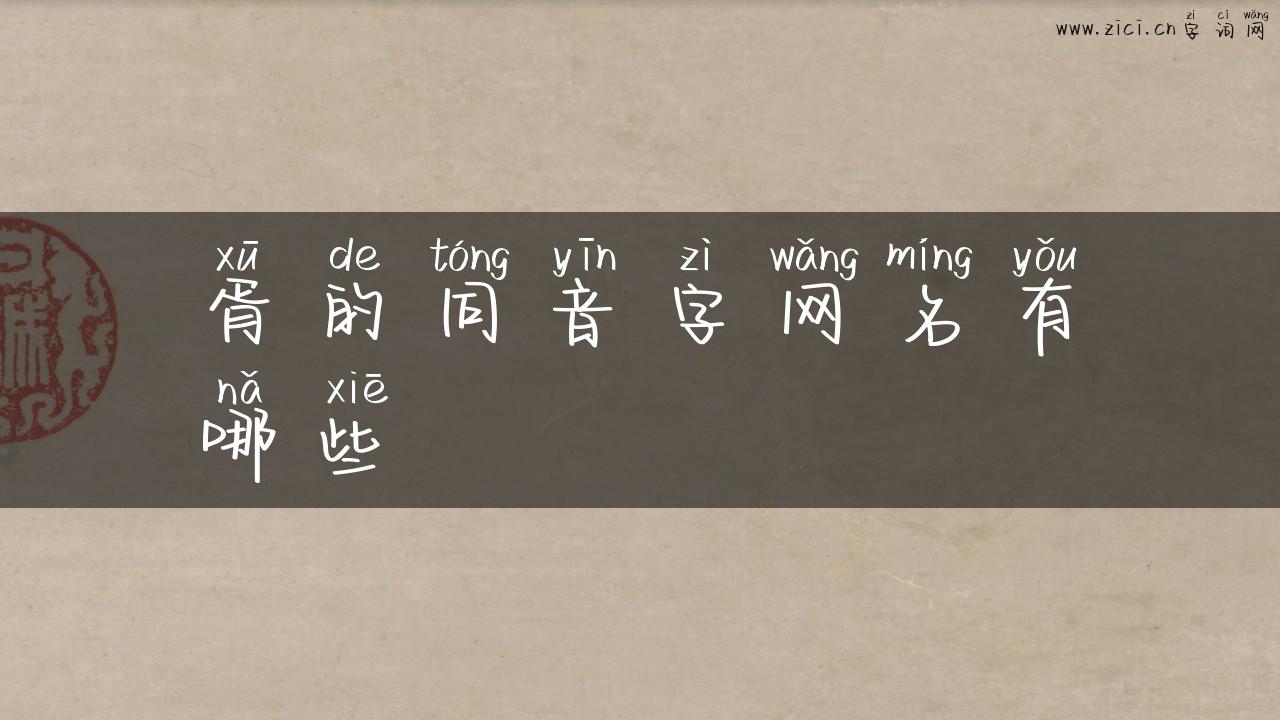 zì cí wǎng
www.zici.cn 字词网
xū de tóng yīn zì wǎng míng yǒu
胥的同音字网名有
nǎ xiē
哪些